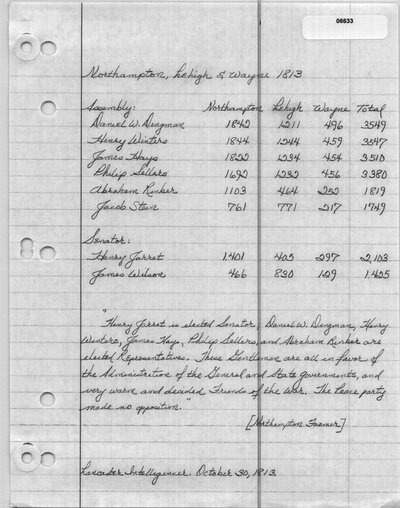 06633
Northampton, Lehigh & Wayne 1813
Assembly: Northampton Lehigh Wayne Total
Daniel W. Dingman 1842 1211 496 3549
Henry Winters 1844 1244 459 3547
James Hays 1822 1234 454 3510
Philip Sellars 1692 1232 456 3380
Abraham Rinker 1103 464 252 1819
Jacob Stein 761 771 217 1749
Senator:
Henry Jarrat 1,401 405 297 2,103
James Wilson 466 830 129 1,425
"Henry Jarrat is elected Senator, Daniel W. Dingman, Henry
Winters, James Hays, Philip Sellers, and Abraham Rinker are
elected Representatives. These Gentlemen are all in favor of
the Administration of the General and State Governments, and
very warm and decided Friends of the War. The Peace party
made no opposition."
[Northampton Farmer]
Lancaster Intelligencer. October 30, 1813.